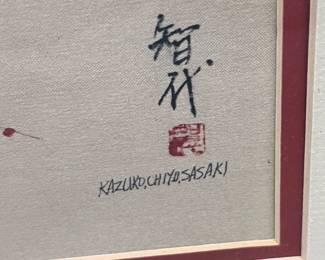 智代
KAZUKO,CHIYO,SASAKI